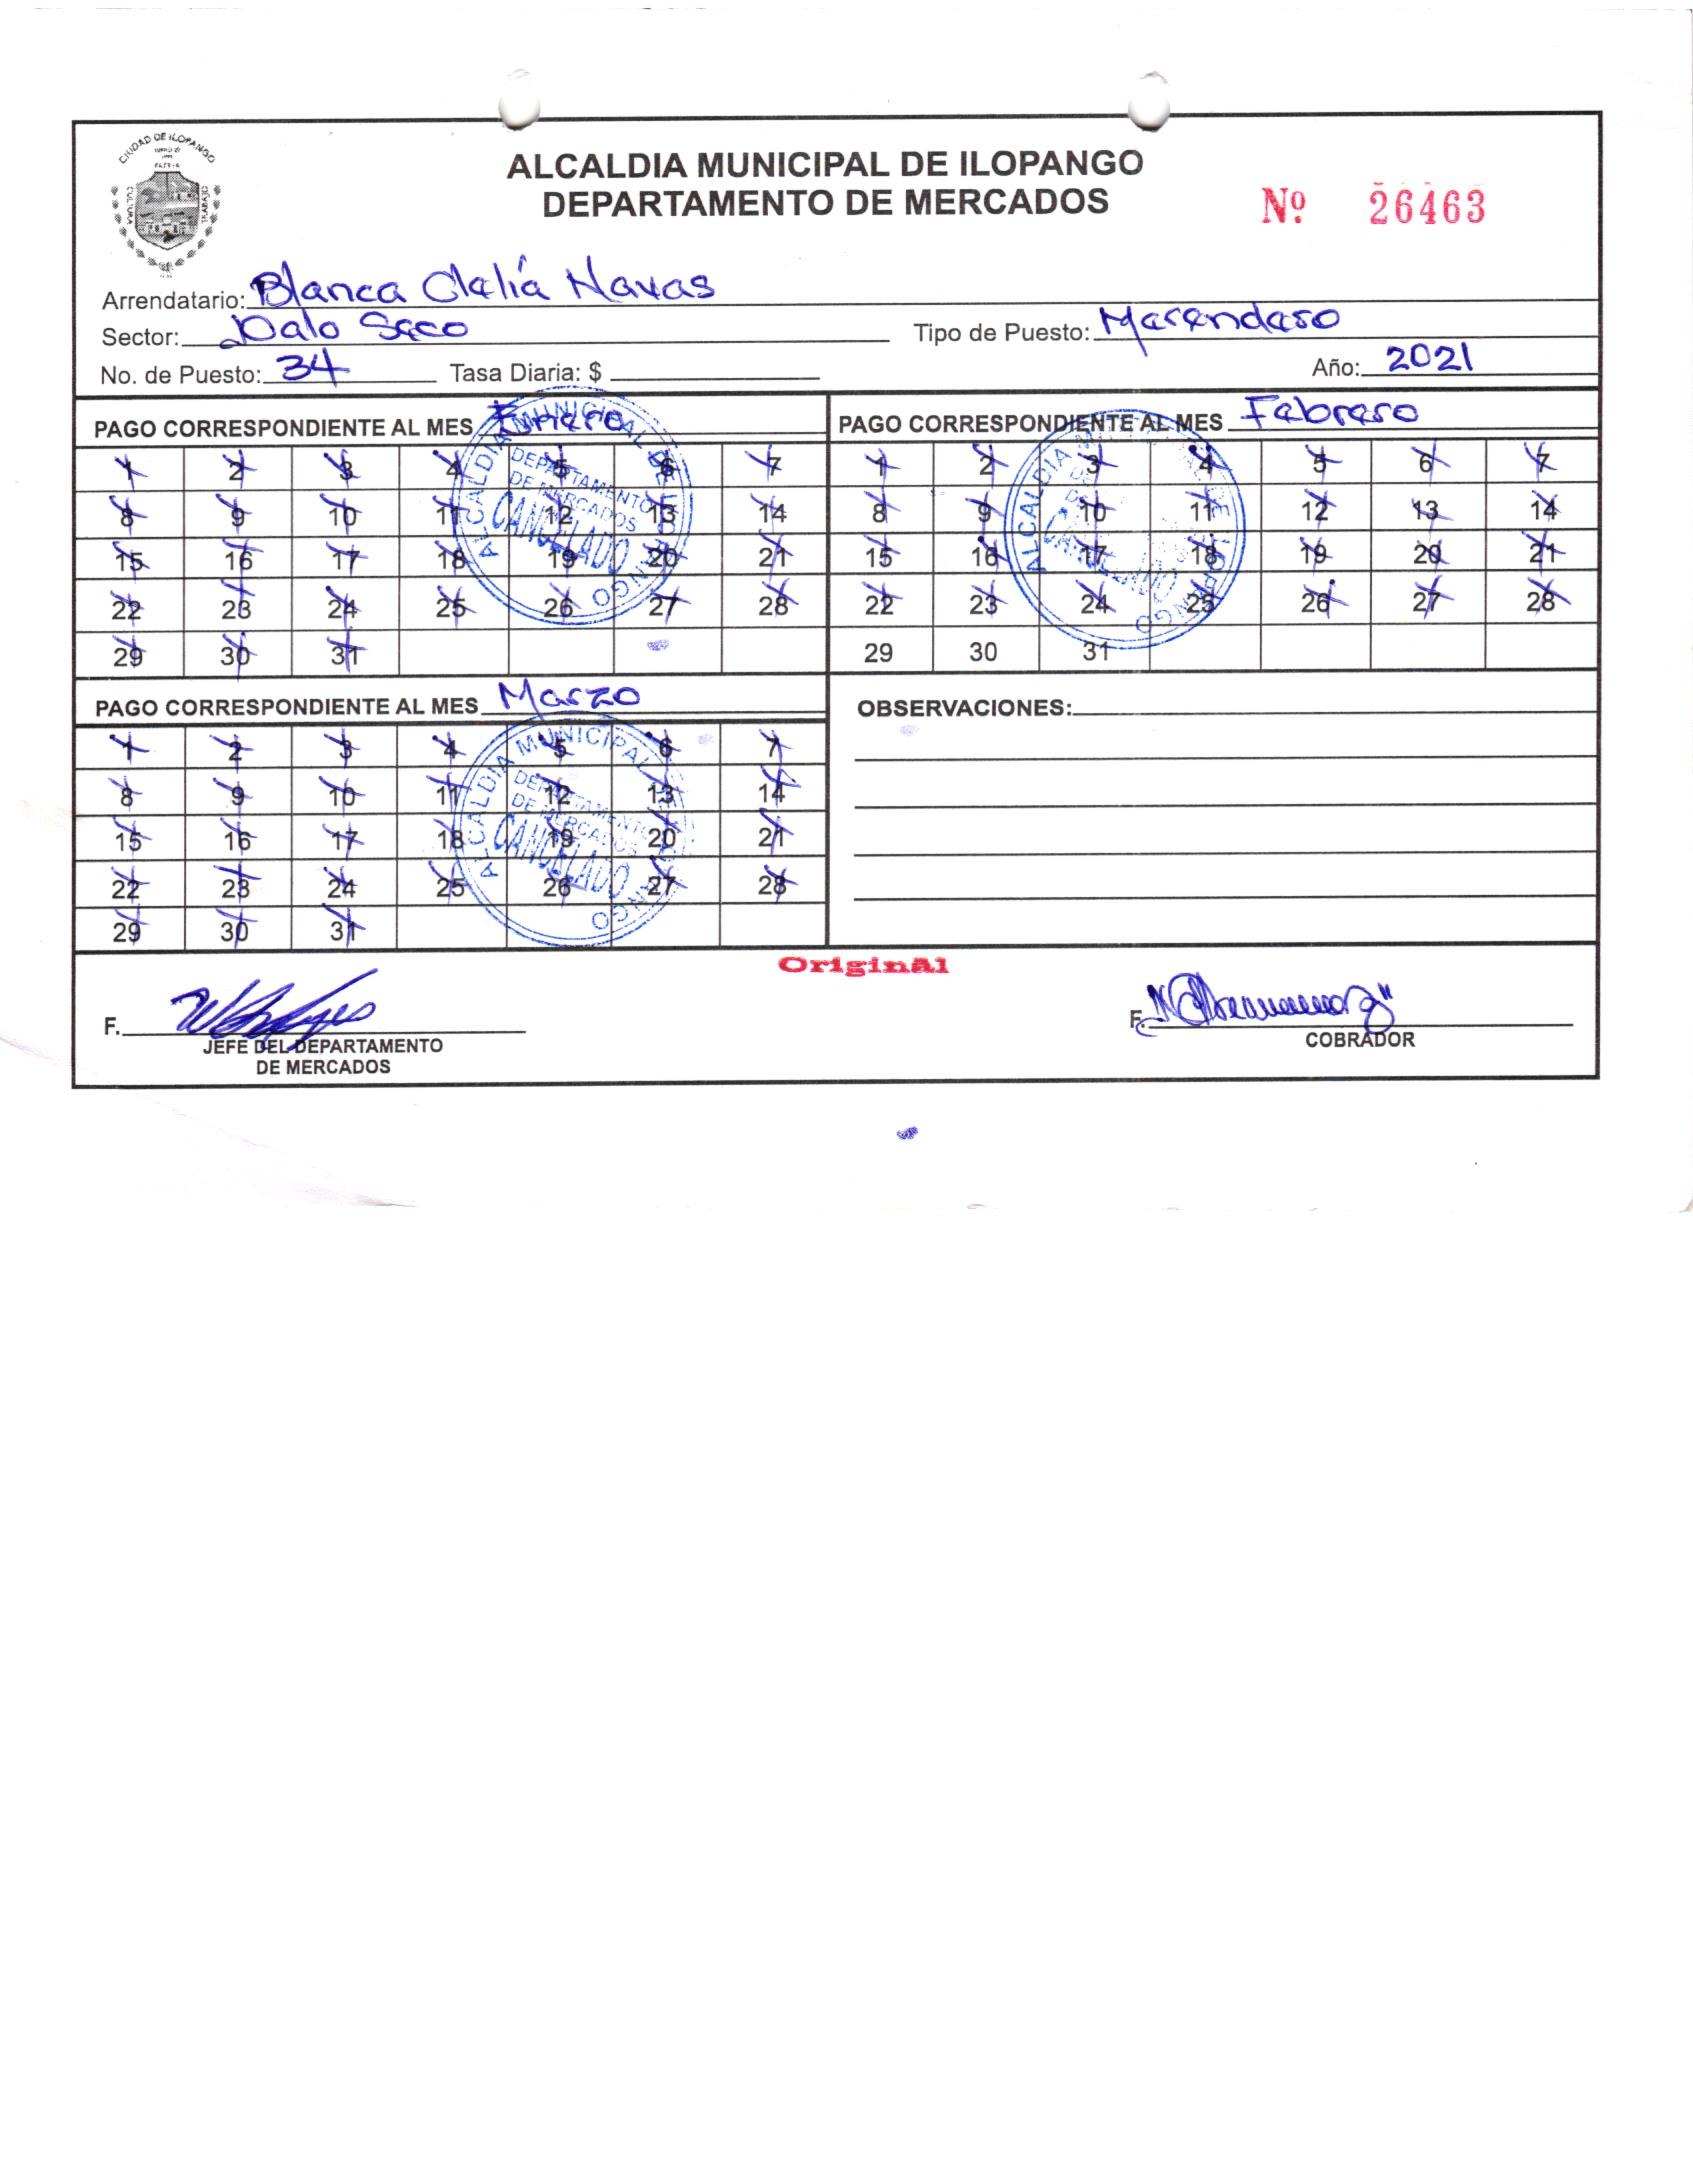 CIUDAD DE ILOPANGO
CULTURA
TRABAJO
ALCALDIA MUNICIPAL DE ILOPANGO
DEPARTAMENTO DE MERCADOS
Nº 26463
Arrendatario: Blanca Clelia Navas
Sector: Palo Seco Tipo de Puesto: Merendero
No. de Puesto: 34 Tasa Diaria: $ Año: 2021
PAGO CORRESPONDIENTE AL MES Enero
1 2 3 4 5 6 7
8 9 10 11 12 13 14
15 16 17 18 19 20 21
22 23 24 25 26 27 28
29 30 31
ALCALDIA MUNICIPAL DE ILOPANGO
DEPARTAMENTO
DE MERCADOS
CANCELADO
PAGO CORRESPONDIENTE AL MES Febrero
1 2 3 4 5 6 7
8 9 10 11 12 13 14
15 16 17 18 19 20 21
22 23 24 25 26 27 28
29 30 31
ALCALDIA MUNICIPAL DE ILOPANGO
CANCELADO
PAGO CORRESPONDIENTE AL MES Marzo
1 2 3 4 5 6 7
8 9 10 11 12 13 14
15 16 17 18 19 20 21
22 23 24 25 26 27 28
29 30 31
ALCALDIA MUNICIPAL DE ILOPANGO
DEPARTAMENTO
DE MERCADOS
CANCELADO
OBSERVACIONES:
Original
F.
JEFE DEL DEPARTAMENTO
DE MERCADOS
F.
COBRADOR